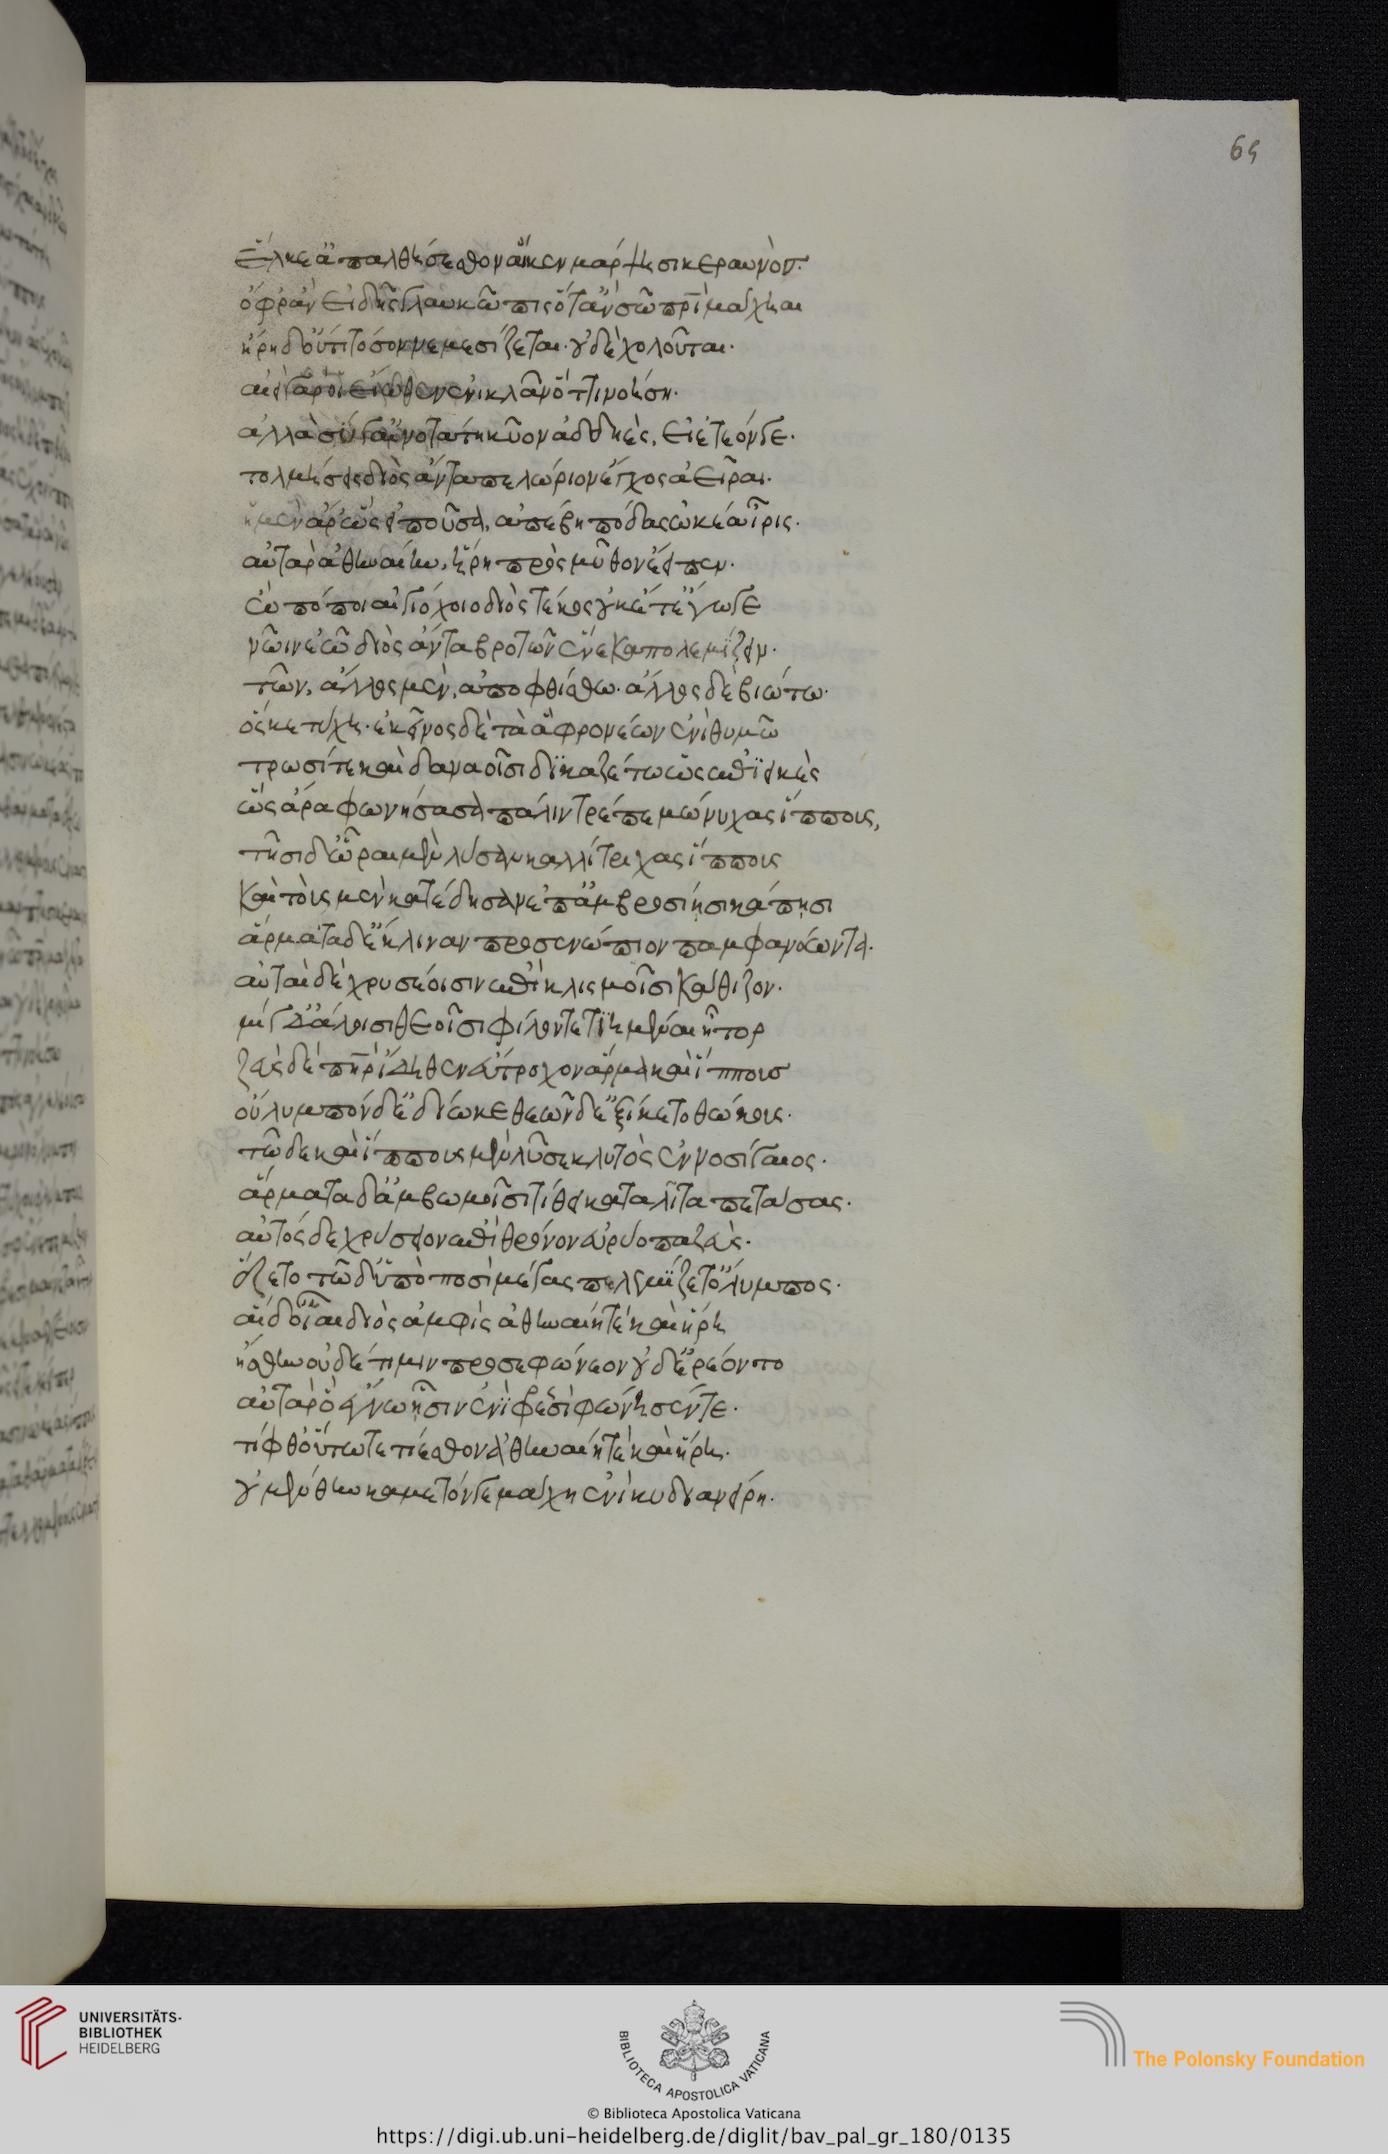 65
ἕλκε' ἀπαλθήσεσθον ἅ κεν μάρπτησι κεραυνόν·
ὄφρ' ἂν εἰδῆς γλαυκῶπις ὅτ' ἂν σῶ πρὶ μάχηαι
ἥρη δ' οὔτι τόσον νεμεσίζεται· οὐδὲ χολοῦται·
αἰεὶ γάρ οἱ εἴωθεν ἐνικλᾶν ὅττι νοήση·
ἀλλὰ σύ γ' αἰνοτάτη κύον ἀδδεὲς, εἰ ἐτεόν γε·
τολμήσεις διὸς ἄντα πελώριον ἔγχος ἀεῖραι·
ἡ μὲν ἄρ' ὣς εἰποῦσα, ἀπέβη πόδας ὠκέα ἶρις·
αὐτὰρ ἀθηναίην, ἥρη πρὸς μῦθον ἔειπεν·
ὦ πόποι αἰγιόχοιο διὸς τέκος οὐκέτ' ἔγωγε
νῶιν ἐῶ διὸς ἄντα βροτῶν ἕνεκα πολεμίζειν·
τῶν, ἄλλος μὲν, ἀποφθίσθω· ἄλλος δὲ βιώτω·
ὅς κε τύχη· ἐκεῖνος δὲ τὰ ἃ φρονέων ἐνὶ θυμῶ
τρωσί τε καὶ δαναοῖσι δικαζέτω ὡς ἐπιεικὲς
ὣς ἄρα φωνήσασα πάλιν τρέπε μώνυχας ἵππους,
τῆσι δ' ὧραι μὲν λύσαν καλλίτριχας ἵππους
καὶ τοὺς μὲν κατέδησαν ἐπ' ἀμβροσίῃσι κάπῃσι
ἅρματα δ' ἔκλιναν πρὸς ἐνώπια παμφανόωντα·
αὐταὶ δὲ χρυσέοισιν ἐπὶ κλισμοῖσι κάθιζον·
μίγδ' ἄλλοισι θεοῖσι φίλον τετιημέναι ἦτορ
ζεὺς δὲ πὴρ ἴδηθεν ἐύτροχον ἅρμα καὶ ἵππους
οὔλυμπόνδ' ἐδίωκε θεῶν δ' ἐξίκετο θώκους·
τῶ δὲ καὶ ἵππους μὲν λῦσε κλυτὸς ἐννοσίγαιος·
ἅρματα δ' ἂμ βωμοῖσι τίθει κατὰ λῖτα πετάσας·
αὐτός δε χρύσειον ἐπὶ θρόνον εὐρύοπα ζεὺς·
ἕζετο τῶ δ' ὑπὸ ποσὶ μέγας πελεμίζετ' ὄλυμπος·
αἳ δ' οἶαι διὸς ἀμφὶς ἀθηναίη τε καὶ ἥρη
ἥσθην οὐδέ τί μιν προσεφώνεον οὐδ' ἐρέοντο
αὐτὰρ ὃ ἔγνω ᾗσιν ἐνὶ φρεσὶ φώνησέν τε·
τίφθ' οὕτω τετίησθον ἀθηναίη τε καὶ ἥρη·
οὐ μὲν θην κάμετόν γε μάχη ἐνὶ κυδιανείρη·
UNIVERSITÄTS-
BIBLIOTHEK
HEIDELBERG
BIBLIOTECA APOSTOLICA VATICANA
The Polonsky Foundation
© Biblioteca Apostolica Vaticana
https://digi.ub.uni-heidelberg.de/diglit/bav_pal_gr_180/0135